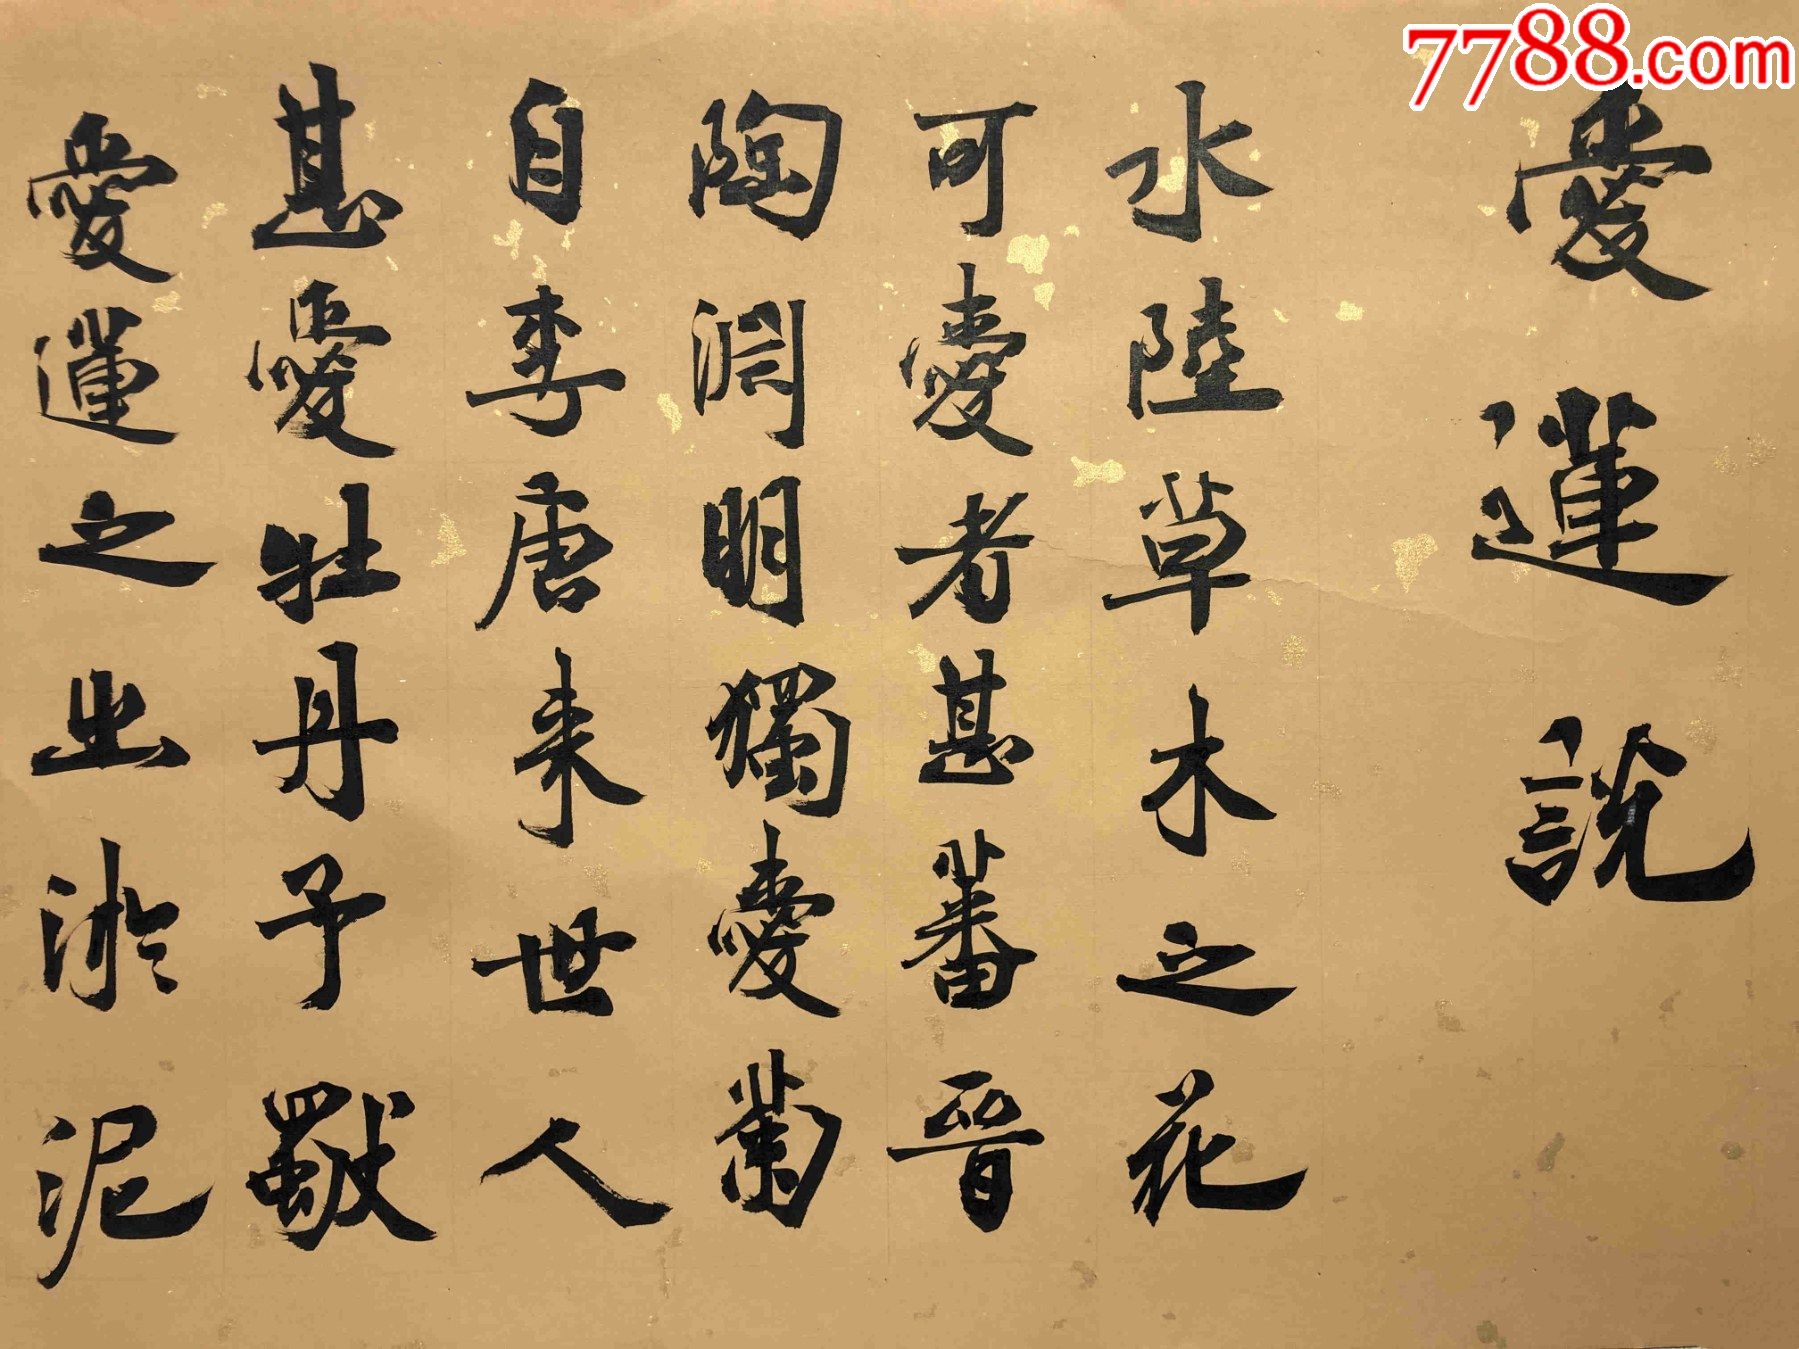 7788.com
愛蓮說
水陸草木之花
可愛者甚蕃晉
陶淵明獨愛菊
自李唐来世人
甚愛牡丹予獨
愛蓮之出淤泥